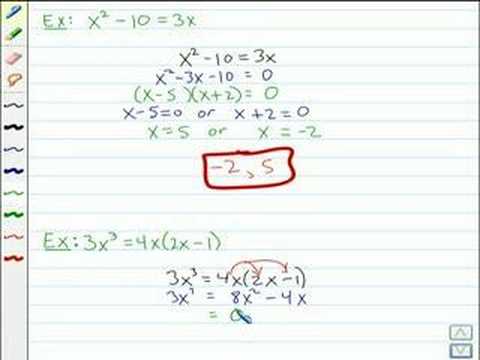 Ex: x² - 10 = 3x
x² - 10 = 3x
x² - 3x - 10 = 0
(x - 5)(x + 2) = 0
x - 5 = 0 or x + 2 = 0
x = 5 or x = -2
-2, 5
Ex: 3x³ = 4x(2x - 1)
3x³ = 4x(2x - 1)
3x³ = 8x² - 4x
= 0